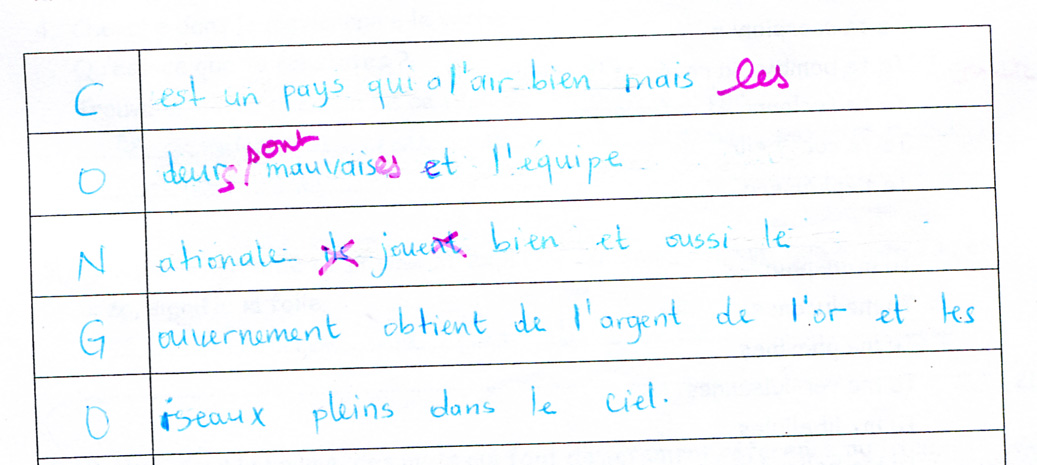 C est un pays qui a l'air bien mais les
O deurs sont mauvaises et l'équipe.
N ationale jouent bien et aussi le
G ouvernement obtient de l'argent de l'or et les
O iseaux pleins dans le ciel.